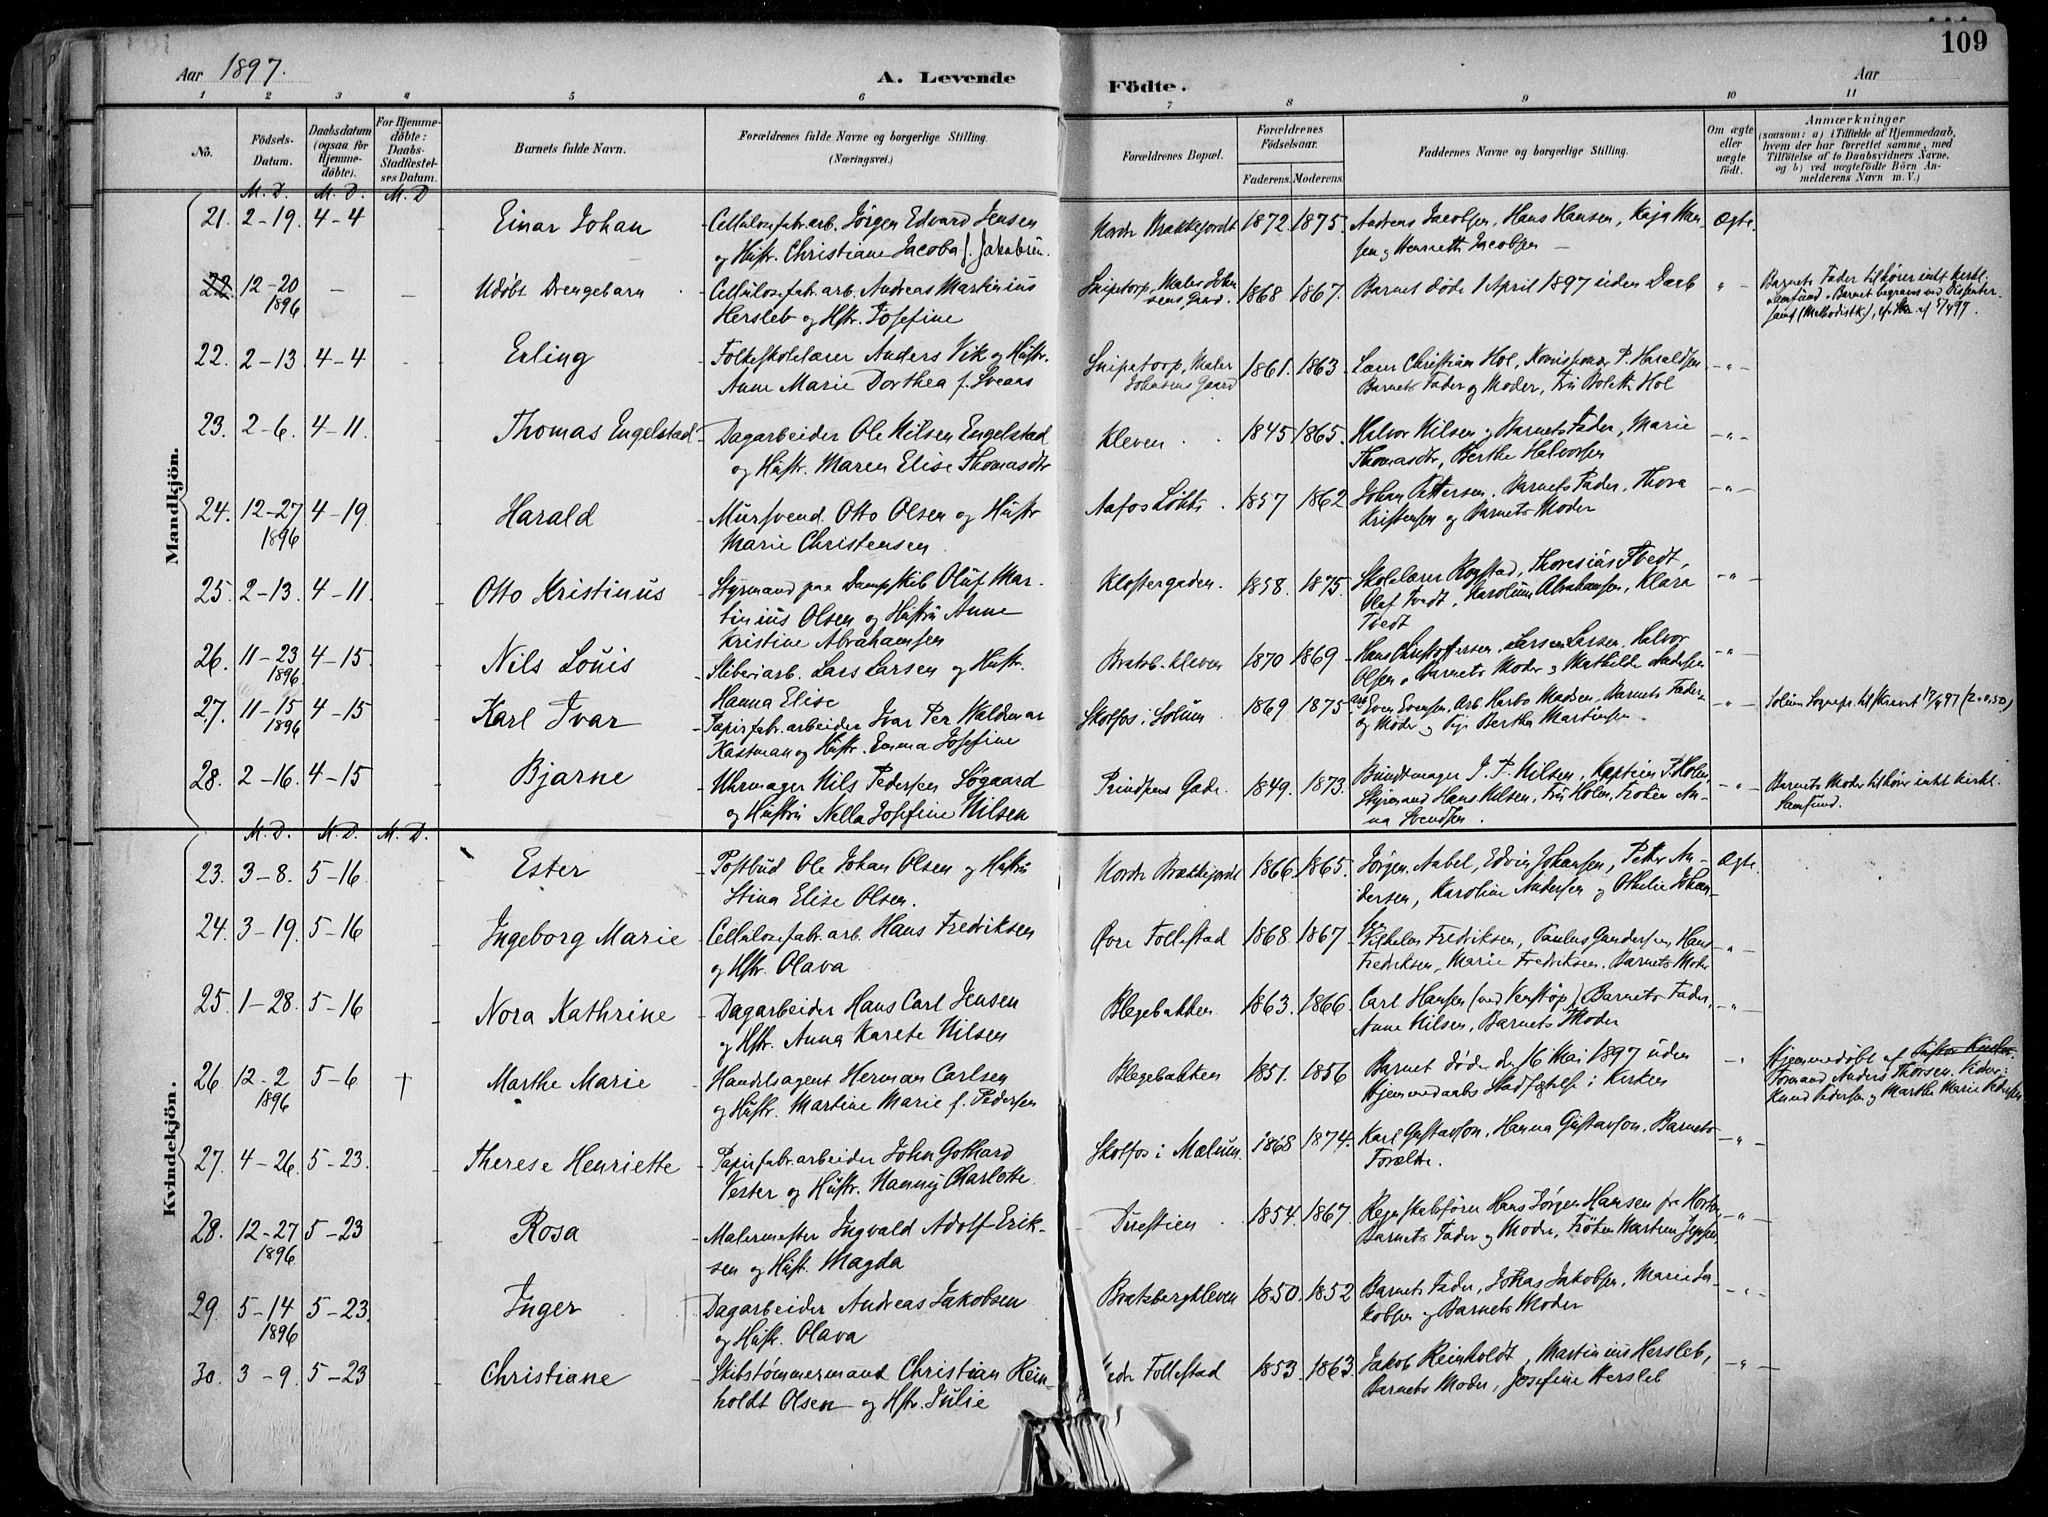 109
Aar 1897.
A. Levende
Födte.
Aar
1 2 3 4 5 6 7 8 9 10 11
No.
Födsels-Datum.
Daabsdatum (ogsaa for Hjemme-döbte).
For Hjemme-döbte: Daabs-Stadfæstel-ses Datum.
Barnets fulde Navn.
Forældrenes fulde Navne og borgerlige Stilling.
(Næringsvei.)
Forældrenes Bopæl.
Forældrenes Födselsaar.
Faderens. Moderens.
Faddernes Navne og borgerlige Stilling.
Om ægte eller uægte födt.
Anmærkninger
(saasom: a) i Tilfælde af Hjemmedaab, hvem der har forrettet samme, med Tilföielse af to Daabsvidners Navne, og b) ved uægtefödte Börn An-melderens Navn m. V.)
M. D. M. D. M. D
Mandkjön.
21. 2-19. 4-4 Einar Johan Cellulosefabr.arb. Jörgen Edvard Jensen Nordr Brækkejordet 1872. 1875. Andreas Jacobsen, Hans Hansen, Kaja Han- Ægte.
og Hustr. Christiane Jacoba f. Jakobsen. sen og Henriette Jacobsen
22. 12-20 Udöbt Drengebarn Cellulosefabr.arb. Andreas Martinius Snipetorp, Maler Johan 1868 1867. Barnet döde 1 April 1897 uden Daab " Barnets Fader tilhörer intet kirkl.
1896 Hersleb og Hstr. Josefine sens Gaard. Samfund. Barnet begraves ved Dissenter-
samf (Methodistk.),
22. 2-13. 4-4 Erling Folkeskolelærer Anders Vik og Hustr. Snipetorp, Maler 1861. 1863. Lærer Christian Hol, P. Haraldsen "
Anne Marie Dorthea f. Sveaas Johnsens Gaard Barnets Fader og Moder, Fru Bolette Hol
23. 2-6. 4-11. Thomas Engelstad Dagarbeider Ole Nilsen Engelstad Kleven 1845 1865. Halvor Nilsen og Barnets Fader, Marie "
og Hustr. Maren Elise Thomasdtr Thomasdtr, Berthe Halvorsen
24. 12-27 4-19 Harald Mursvend Otto Olsen og Hustr Aafos Løkke 1857 1862 Johan Pettersen, Barnets Fader, Thora "
1896 Marie Christensen Kristensen og Barnets Moder
25. 2-13. 4-11 Otto Kristinus Styrmand paa Dampskib Oluf Mar- Klostergaden. 1858. 1875. Skolelærer Rogstad, Thoresius Tvedt, "
tinius Olsen og Hustru Anne Olaf Tvedt, Karoline Abrahamsen, Klara
Kristine Abrahamsen Tvedt
26. 11-23 4-15. Nils Louis Sliberiarb. Lars Larsen og Hustr. Bratsb. kleven 1870 1869 Hans Christoffersen, Lars Larsen, Halvor "
1896 Hanna Elise Olsen, Barnets Moder og Mathilde
27. 11-15 4-15 Karl Ivar Papirfabr.arbeider Ivar Per Valdemar Skotfos i Solum. 1869 1875 Arb Even Evensen, Arb Harbo Madsen, Barnets Fader "
1896 Kastman og Hustr. Emma Josefine og Moder og Pige Bertha Martinsen.
28. 2-16. 4-15 Bjarne Uhrmager Nils Pedersen Søgaard Prindsens Gade. 1849. 1873. Bundtmager J. P. Nilsen, Kaptein F. Holm, " Barnets Moder tilhörer intet kirkl.
og Hustru Nella Josefine Nilsen Styrmand Hans Nilsen, Fru Holm, Fröken An- Samfund.
na Svendsen.
M. D. M. D. M. D.
Kvindekjön.
23. 3-8. 5-16 Ester Postbud Ole Johan Olsen og Hustru Nordr Brækkejordet 1866 1865. Jørgen Aabel, Edvin Johansen, Petter An- Ægte.
Stina Elise Olsen. dersen, Karoline Andersen og Othelie Johan-
24. 3-19. 5-16 Ingeborg Marie Cellulosefabr.arb. Hans Fredriksen Øvre Follestad 1868. 1867 Vilhelm Fredriksen, Paulus Gundersen, Hans "
og Hstr. Olava Fredriksen, Marie Fredriksen. Barnets Moder
25. 1-28. 5-16 Nora Kathrine Dagarbeider Hans Carl Jensen Blegebakken 1863. 1866. Carl Hansen (ved Venstøp) Barnets Fader, "
og Hstr. Anna Karete Nilsen Anne Nilsen, Barnets Moder
26. 12-2 5-6 † Marthe Marie Handelsagent Herman Carlsen Blegebakken 1851. 1856 Barnet döde den 16 Mai 1897 uden " Hjemmedöbt af
1896 og Hustr. Martine Marie f. Pedersen Hjemmedaabs Stadfæstelse i Kirken Formand Anders Thorsen.
Knud Pedersen og Marthe Marie Pedersen
27. 4-26. 5-23. Therese Henriette Papirfabr.arbeider John Gothard Skotfos i Mælum. 1868 1874. Karl Gustavson, Hanna Gustavson, Barnets "
Vester og Hustr. Nanny Charlotte Forældre.
28. 12-27 5-23 Rosa Malermester Ingvald Adolf Erik- Duestien 1854. 1867 Regnskabsfører Hans Jørgen Hansen fra "
1896 sen og Hust. Magda Barnets Fader og Moder, Fröken Martine Jppsen,
29. 5-14 5-23. Inger Dagarbeider Andreas Jakobsen Bratsbergkleven 1850. 1852 Barnets Fader, Johas Jakobsen, Marie Ja- "
1896 og Hustr. Olava kobsen og Barnets Moder
30. 3-9. 5-23 Christiane Skibstømmermand Christian Rein- Follestad 1853. 1863. Jakob Reinholdt, Martinius Hersleb, "
holdt Olsen og Hstr. Julie Barnets Moder, Josefine Hersleb